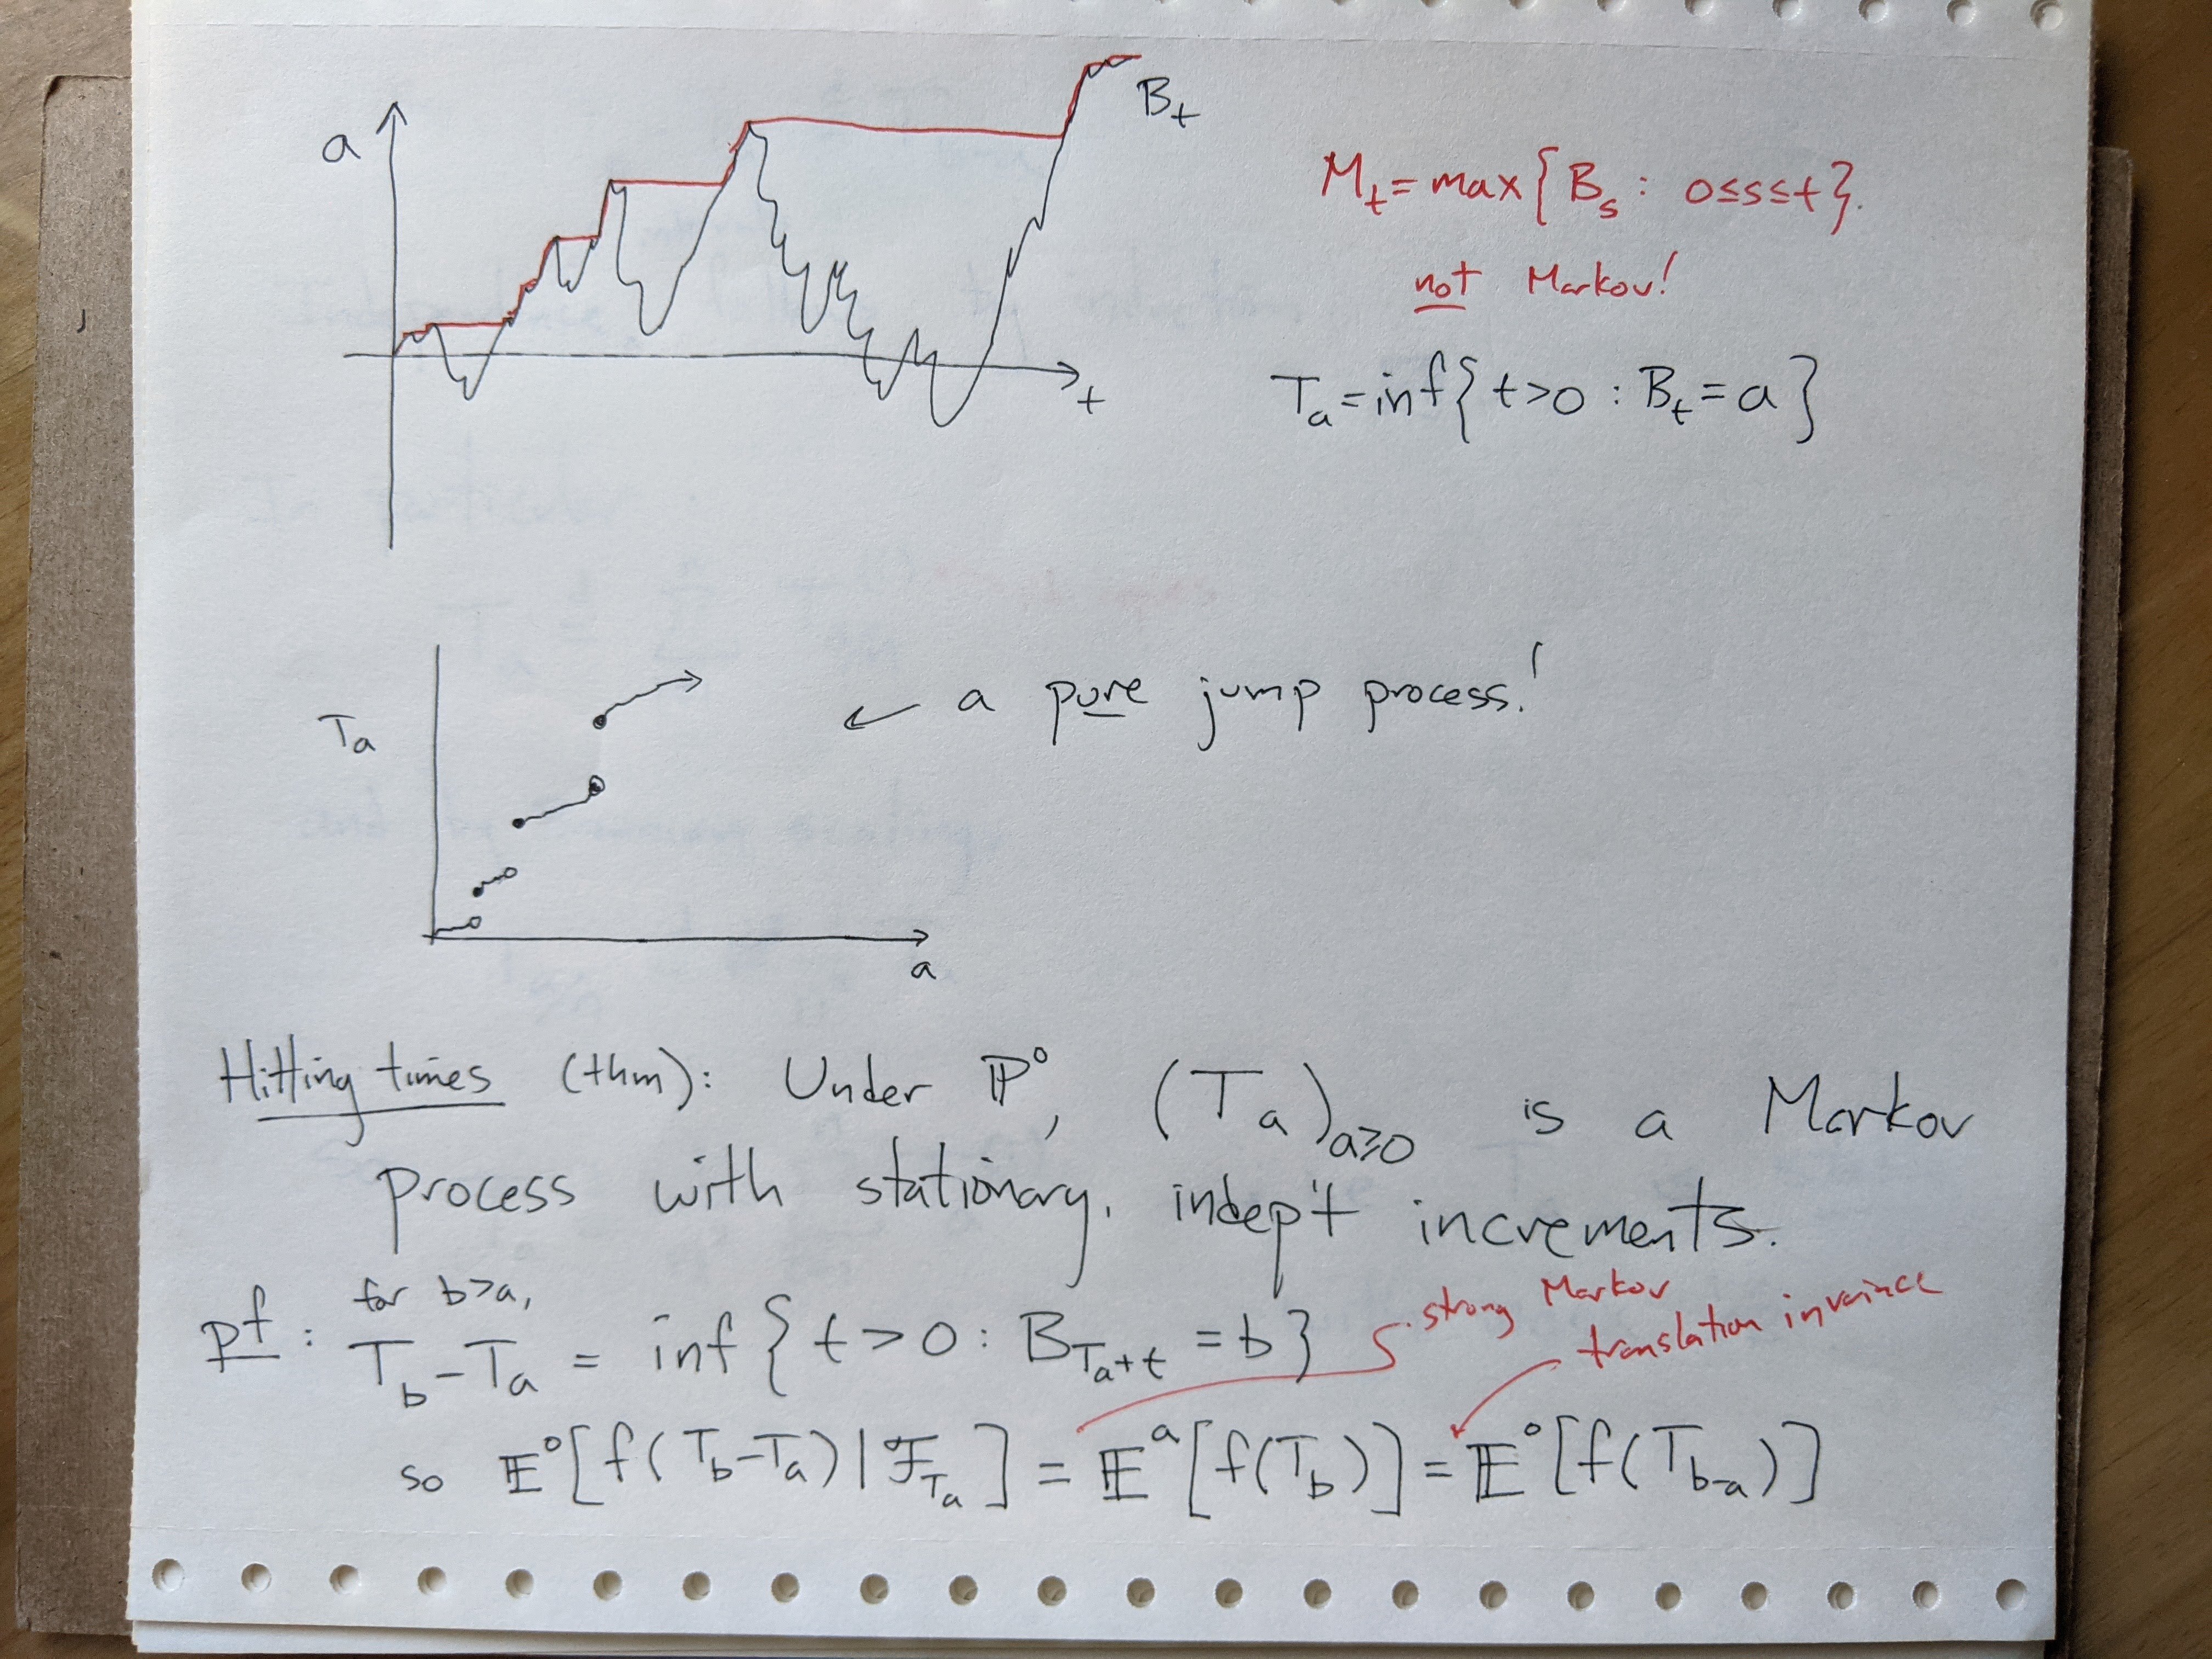 a
B_t
t
M_t = max{B_s : 0≤s≤t}.
not Markov!
T_a = inf{t>0 : B_t = a}
T_a
← a pure jump process!
a
Hitting times (thm): Under ℙ⁰, (T_a)_{a≥0} is a Markov
process with stationary, indep't increments.
pf: for b>a,
T_b - T_a = inf{t>0 : B_{T_a+t} = b}
strong Markov
translation invariance
so 𝔼⁰[f(T_b-T_a)|ℱ_{T_a}] = 𝔼^a[f(T_b)] = 𝔼⁰[f(T_{b-a})]